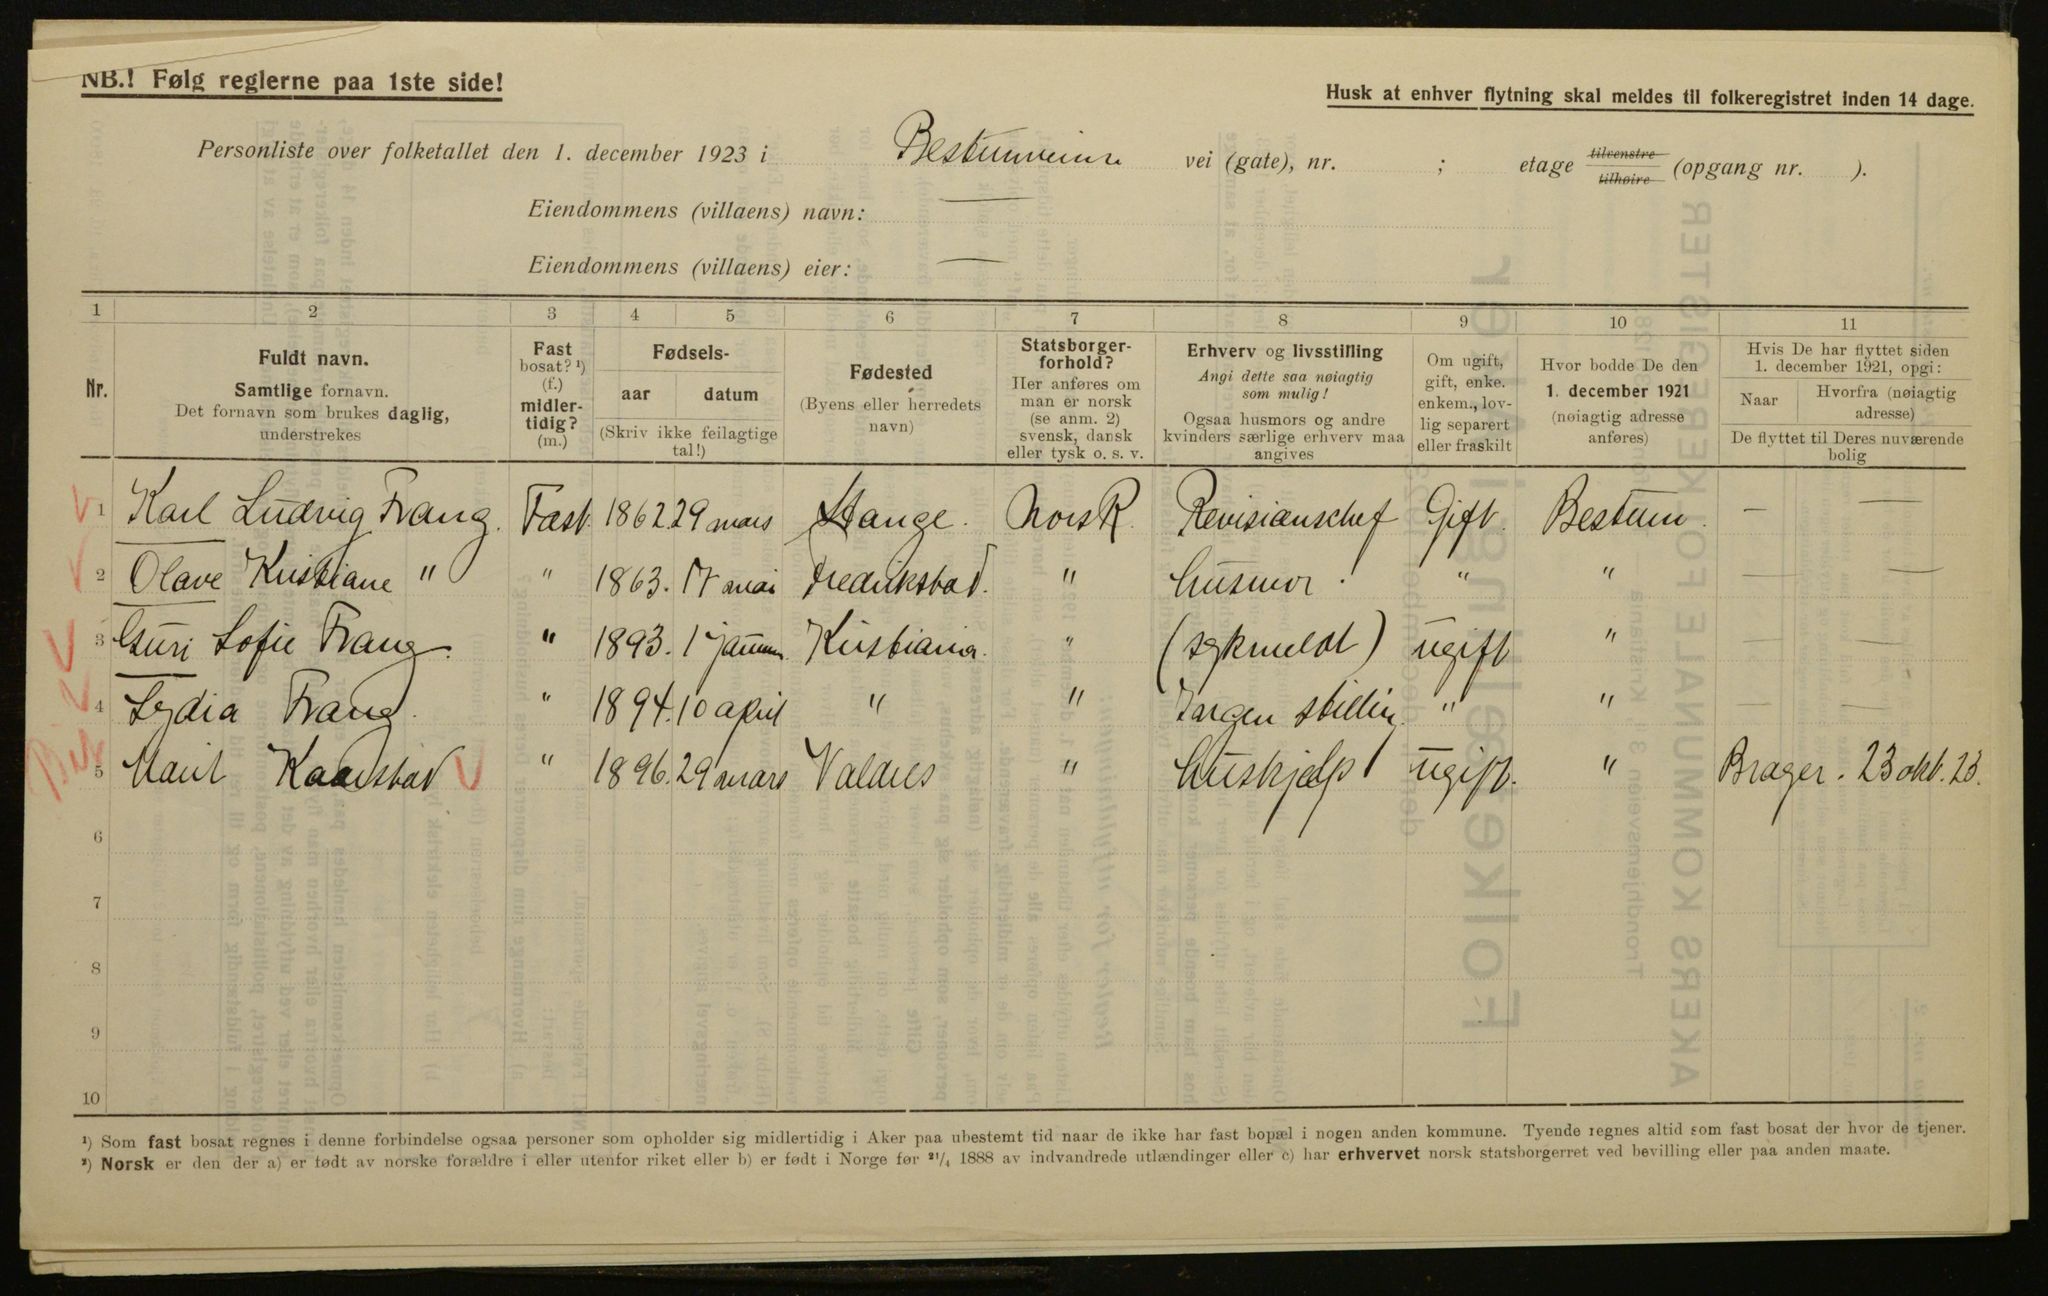 NB.! Følg reglerne paa 1ste side!
Husk at enhver flytning skal meldes til folkeregistret inden 14 dage.
Personliste over folketallet den 1. december 1923 i Bestumveien vei (gate), nr. ; etage tilvenstre tilhøire (opgang nr. ).
Eiendommens (villaens) navn: —
Eiendommens (villaens) eier: —
1 2 3 4 5 6 7 8 9 10 11
Nr.
Fuldt navn.
Samtlige fornavn.
Det fornavn som brukes daglig,
understrekes
Fast
bosat? ¹)
(f.)
midler-
tidig?
(m.)
Fødsels-
aar datum
(Skriv ikke feilagtige
tal!)
Fødested
(Byens eller herredets
navn)
Statsborger-
forhold?
Her anføres om
man er norsk
(se anm. 2)
svensk, dansk
eller tysk o. s. v.
Erhverv og livsstilling
Angi dette saa nøiagtig
som mulig!
Ogsaa husmors og andre
kvinders særlige erhverv maa
angives
Om ugift,
gift, enke.
enkem., lov-
lig separert
eller fraskilt
Hvor bodde De den
1. december 1921
(nøiagtig adresse
anføres)
Hvis De har flyttet siden
1. december 1921, opgi:
Naar Hvorfra (nøiagtig
adresse)
De flyttet til Deres nuværende
bolig
1 Karl Ludvig Frang. Fast. 1862 29 mars Stange. Norsk. Revisianschef Gift. Bestum. — —
2 Olave Kristiane " " 1863. 17 mai Fredrikstad. " husmor. " " — —
3 Guri Sofie Frang. " 1893. 1 januar. Kristiania. " (sykmeldt) ugift " — —
4 Lydia Frang. " 1894. 10 april " " Ingen stilling. " " — —
5 Marit Kaarstad " 1896. 29 mars Valdres " Huskjelp ugift. " Brager. 23 okt. 23.
6
7
8
9
10
¹) Som fast bosat regnes i denne forbindelse ogsaa personer som opholder sig midlertidig i Aker paa ubestemt tid naar de ikke har fast bopæl i nogen anden kommune. Tyende regnes altid som fast bosat der hvor de tjener.
²) Norsk er den der a) er født av norske forældre i eller utenfor riket eller b) er født i Norge før ²¹/₄ 1888 av indvandrede utlændinger eller c) har erhvervet norsk statsborgerret ved bevilling eller paa anden maate.